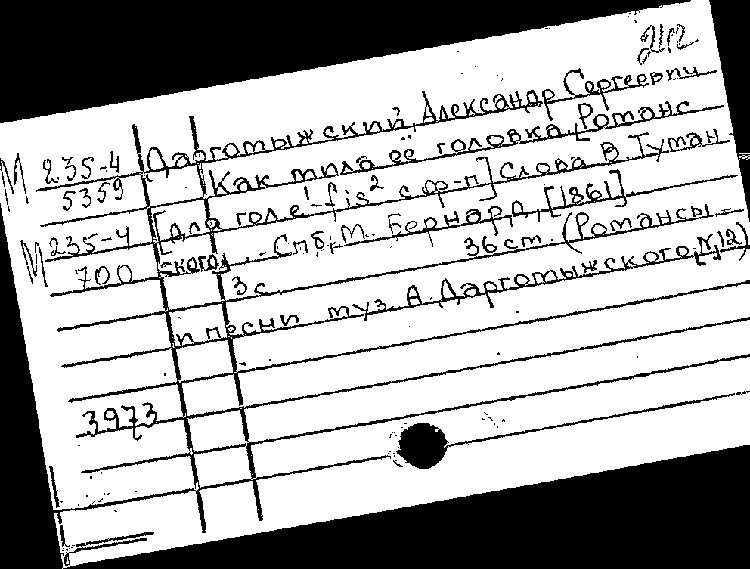 2112
М 235-4 Даргомыжский, Александр Сергеевич
5359 Как мила её головка. [Романс
М 235-4 [для гол. e¹-fis² с ф-п] Слова В. Туман
700 ского. - Спб, М. Бернард, [1861].
3 с. 36 см. (Романсы
и песни муз. А. Даргомыжского, [N, 12)
3973